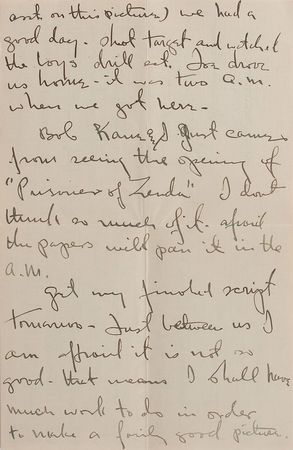 asst on this picture) we had a
good day. Shot target and watched
the boys drill etc. Joe drove
us home - it was two a.m.
when we got here -
Bob Kane & I just came
from seeing the opening of
"Prisoner of Zenda" I dont
think so much of it. afraid
the papers will pan it in the
a.m.
get my finished script
tomorrow - Just between us I
am afraid it is not so
good - that means I shall have
much work to do in order
to make a fairly good picture.